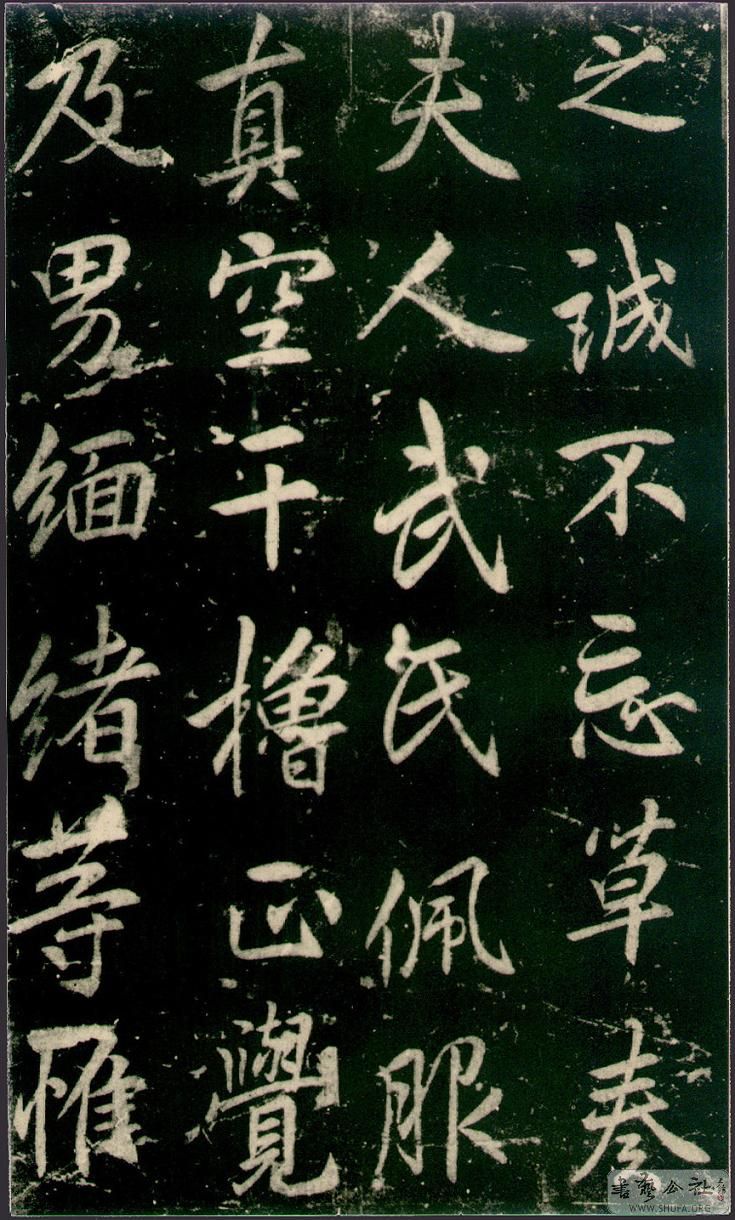 之誠不忘草奏
夫人武氏佩服
真空干櫓正覺
及男緬緒等罹
書藝公社
WWW.SHUFA.ORG